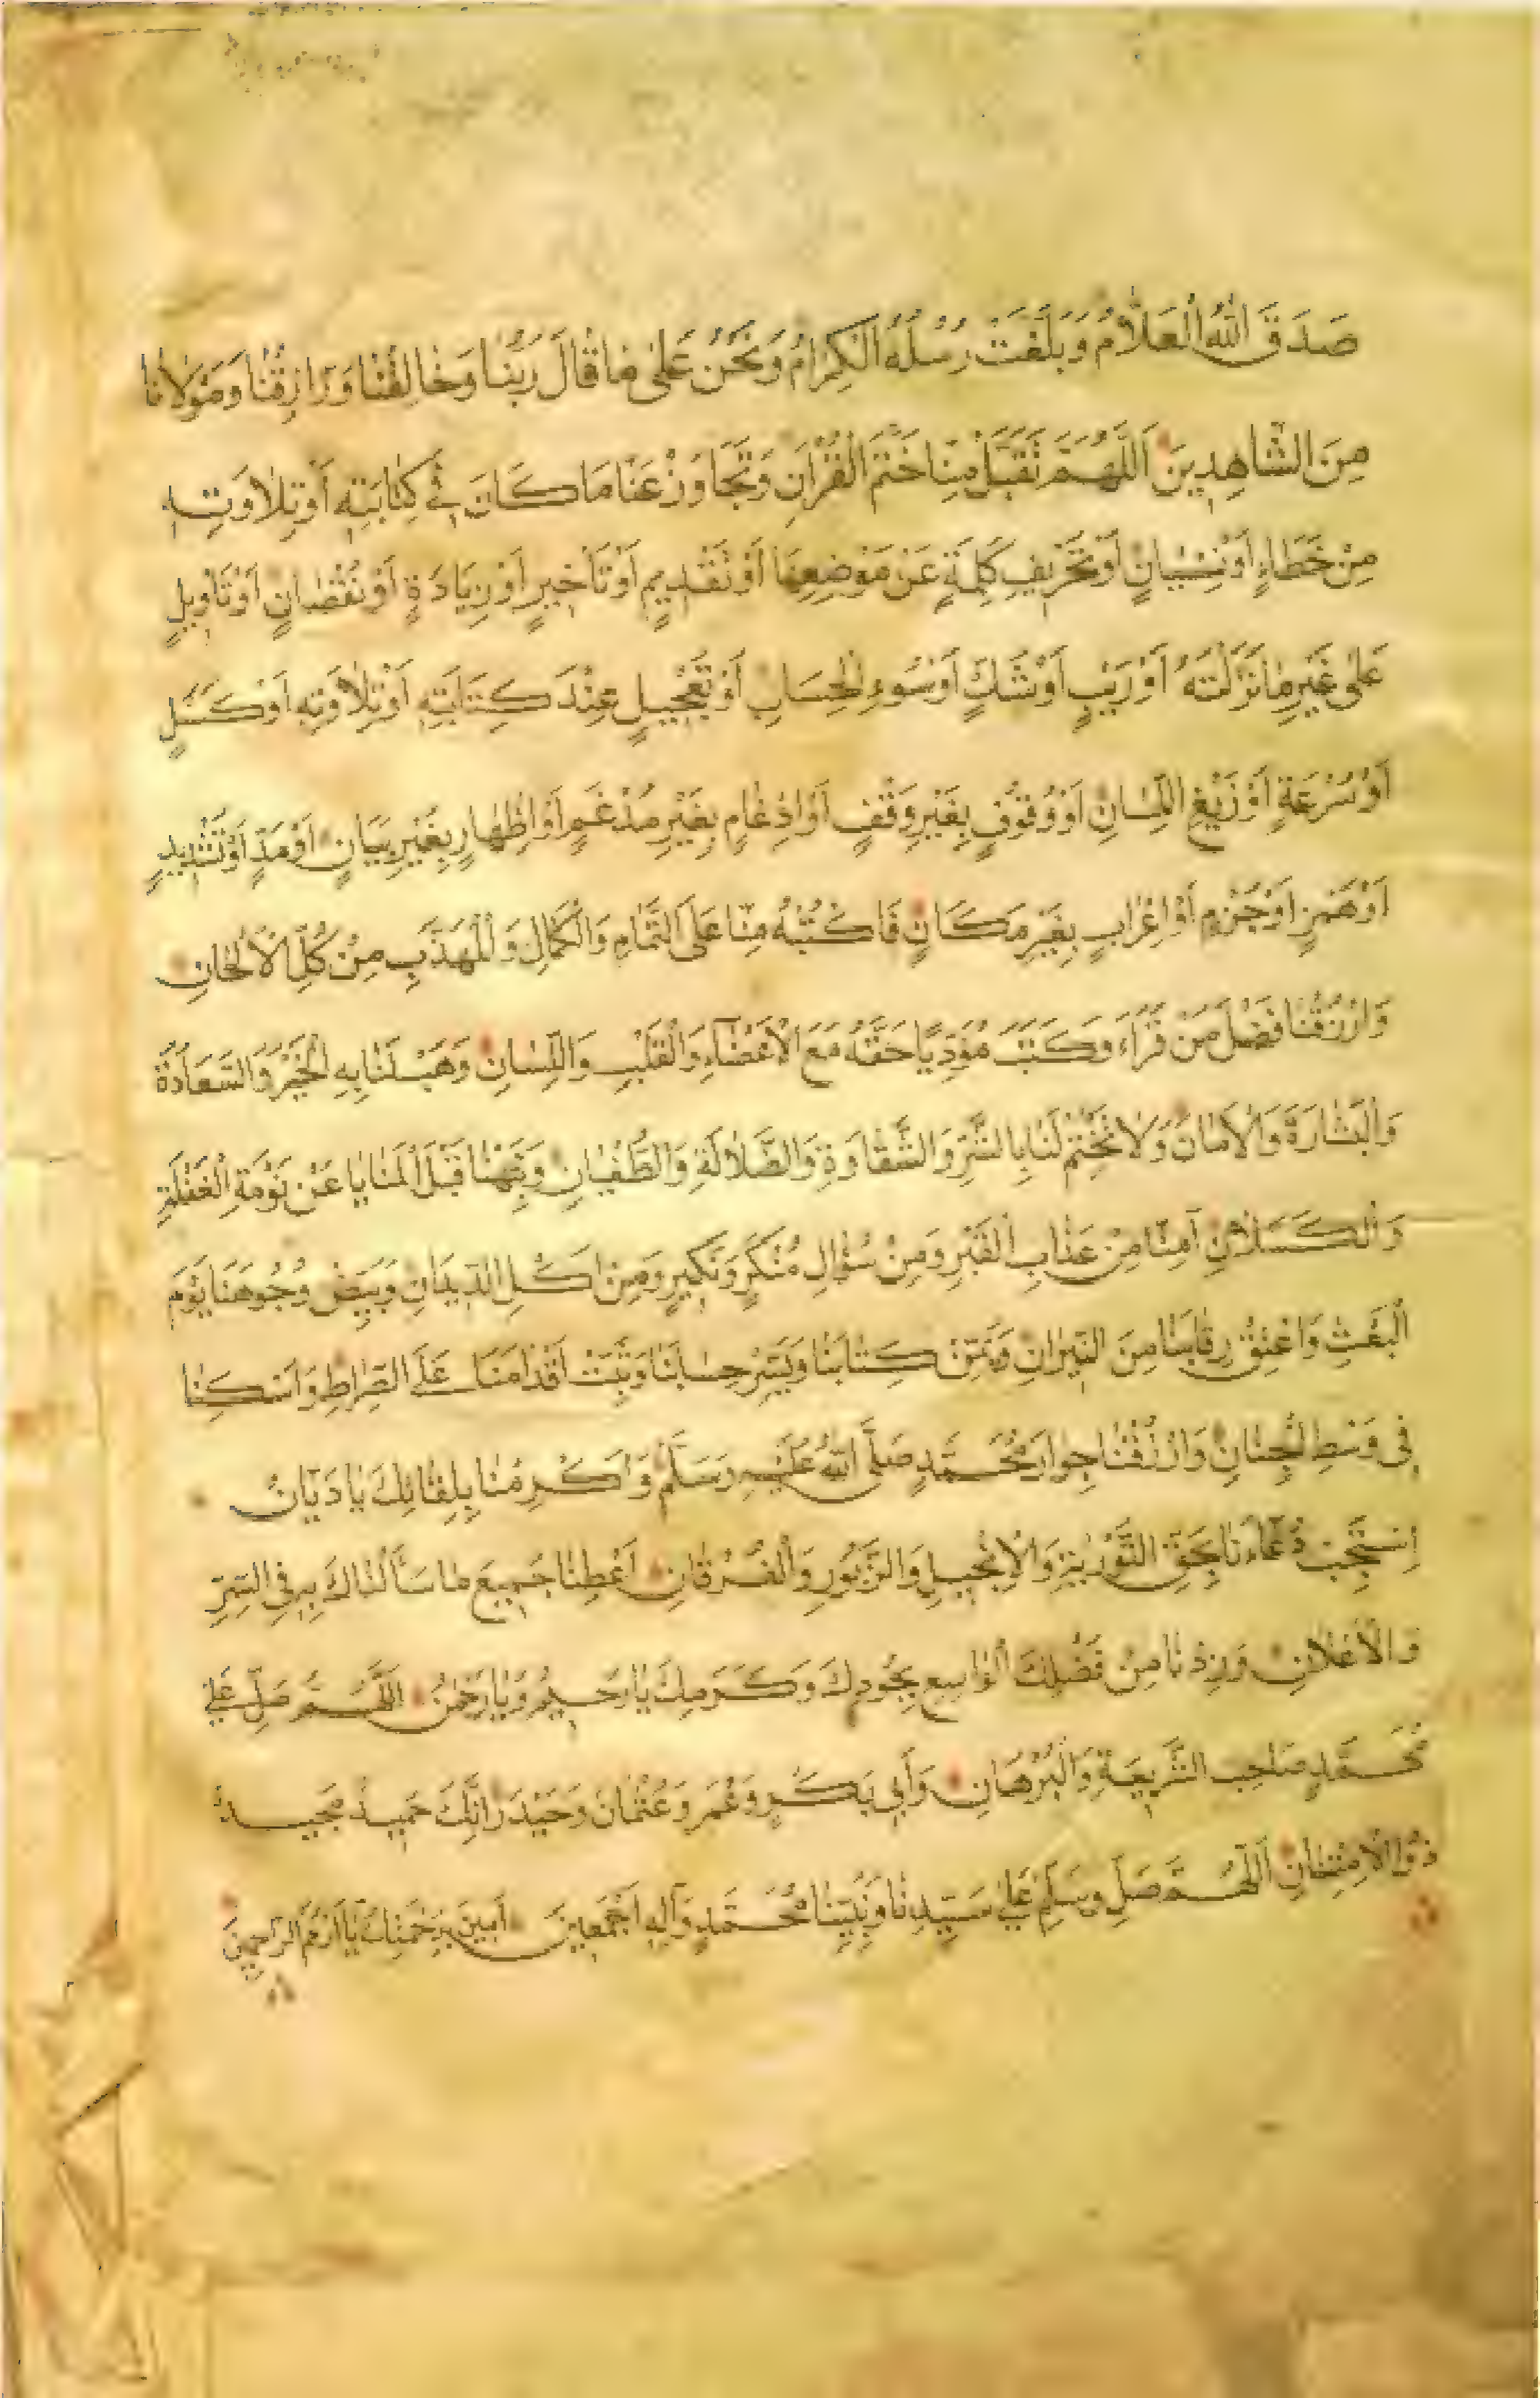 صَدَقَ اللهُ الْعَلَّامُ وَبَلَّغَتْ رُسُلُهُ الْكِرَامُ وَنَحْنُ عَلَىٰ مَا قَالَ رَبُّنَا وَخَالِقُنَا وَرَازِقُنَا وَمَوْلَانَا
مِنَ الشَّاهِدِينَ اَللّٰهُمَّ تَقَبَّلْ مِنَّا خَتْمَ الْقُرْاٰنِ وَتَجَاوَزْ عَنَّا مَا كَانَ فِي كِتَابَتِهِ أَوْ تِلَاوَتِهِ
مِنْ خَطَاءٍ أَوْ نِسْيَانٍ أَوْ تَحْرِيفِ كَلِمَةٍ عَنْ مَوْضِعِهَا أَوْ تَقْدِيمٍ أَوْ تَأْخِيرٍ أَوْ زِيَادَةٍ أَوْ نُقْصَانٍ أَوْ تَأْوِيلٍ
عَلَىٰ غَيْرِ مَا نَزَّلْتَهُ أَوْ رَيْبٍ أَوْ شَكٍّ أَوْ سُوءِ الْحِسَابِ أَوْ تَعْجِيلٍ عِنْدَ كِتَابَتِهِ أَوْ تِلَاوَتِهِ أَوْ كَسَلٍ
أَوْ سُرْعَةٍ أَوْ زَيْغِ اللِّسَانِ أَوْ وُقُوفٍ بِغَيْرِ وَقْفٍ أَوْ اِدْغَامٍ بِغَيْرِ مُدْغَمٍ أَوْ اِظْهَارٍ بِغَيْرِ بَيَانٍ أَوْ مَدٍّ أَوْ تَشْدِيدٍ
أَوْ هَمْزٍ أَوْ جَزْمٍ أَوْ اِعْرَابٍ بِغَيْرِ مَكَانٍ فَاكْتُبْهُ مِنَّا عَلَى التَّمَامِ وَالْكَمَالِ وَالْمُهَذَّبِ مِنْ كُلِّ الْأَلْحَانِ
وَارْزُقْنَا فَضْلَ مَنْ قَرَاَءَ وَكَتَبَ مُؤَدِّيًا حَقَّهُ مَعَ الْأَعْضَاءِ وَالْقَلْبِ وَاللِّسَانِ وَهَبْ لَنَا بِهِ الْخَيْرَ وَالسَّعَادَةَ
وَالْبَشَارَةَ وَالْأَمَانَ وَلَا تَخْتِمْ لَنَا بِالشَّرِّ وَالشَّقَاوَةِ وَالضَّلَالَةِ وَالطُّغْيَانِ وَنَبِّهْنَا قَبْلَ الْمَنَايَا عَنْ نَوْمَةِ الْغَفْلَةِ
وَالْكَسَلَانِ آمِنَّا مِنْ عَذَابِ الْقَبْرِ وَمِنْ سُؤَالِ مُنْكَرٍ وَنَكِيرٍ وَمِنْ اَكْلِ الدِّيدَانِ وَبَيِّضْ وُجُوهَنَا يَوْمَ
الْبَعْثِ وَاعْتِقْ رِقَابَنَا مِنَ النِّيرَانِ وَيَمِّنْ كِتَابَنَا وَيَسِّرْ حِسَابَنَا وَثَبِّتْ اَقْدَامَنَا عَلَى الصِّرَاطِ وَاسْكِنَّا
فِي وَسَطِ الْجِنَانِ وَارْزُقْنَا جِوَارَ مُحَمَّدٍ صَلَّى اللهُ عَلَيْهِ وَسَلَّمَ وَاَكْرِمْنَا بِلِقَائِكَ يَا دَيَّانُ
اِسْتَجِبْ دُعَاءَنَا بِحَقِّ التَّوْرٰيةِ وَالْاِنْجِيلِ وَالزَّبُورِ وَالْفُرْقَانِ اَعْطِنَا جَمِيعَ مَا سَأَلْنَاكَ بِهِ فِي السِّرِّ
وَالْأَعْلَانِ وَزِدْنَا مِنْ فَضْلِكَ الْوَاسِعِ بِجُودِكَ وَكَرَمِكَ يَا رَحِيمُ وَيَا رَحْمٰنُ اَللّٰهُمَّ صَلِّ عَلَىٰ
مُحَمَّدٍ صَاحِبِ الشَّرِيعَةِ وَالْبُرْهَانِ وَأَبِي بَكْرٍ وَعُمَرَ وَعُثْمَانَ وَحَيْدَرَ اِنَّكَ حَمِيدٌ مَجِيدٌ
ذُو الْاِمْتِنَانِ اَللّٰهُمَّ صَلِّ وَسَلِّمْ عَلَىٰ سَيِّدِنَا وَنَبِيِّنَا مُحَمَّدٍ وَآلِهِ اَجْمَعِينَ اٰمِينَ بِرَحْمَتِكَ يَا اَرْحَمَ الرَّاحِمِينَ